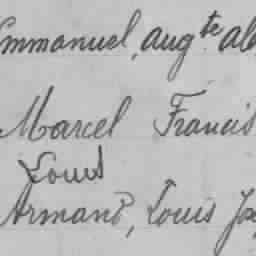 Emmanuel, augte al
Marcel Francis
Louis
Armand, Louis Jos